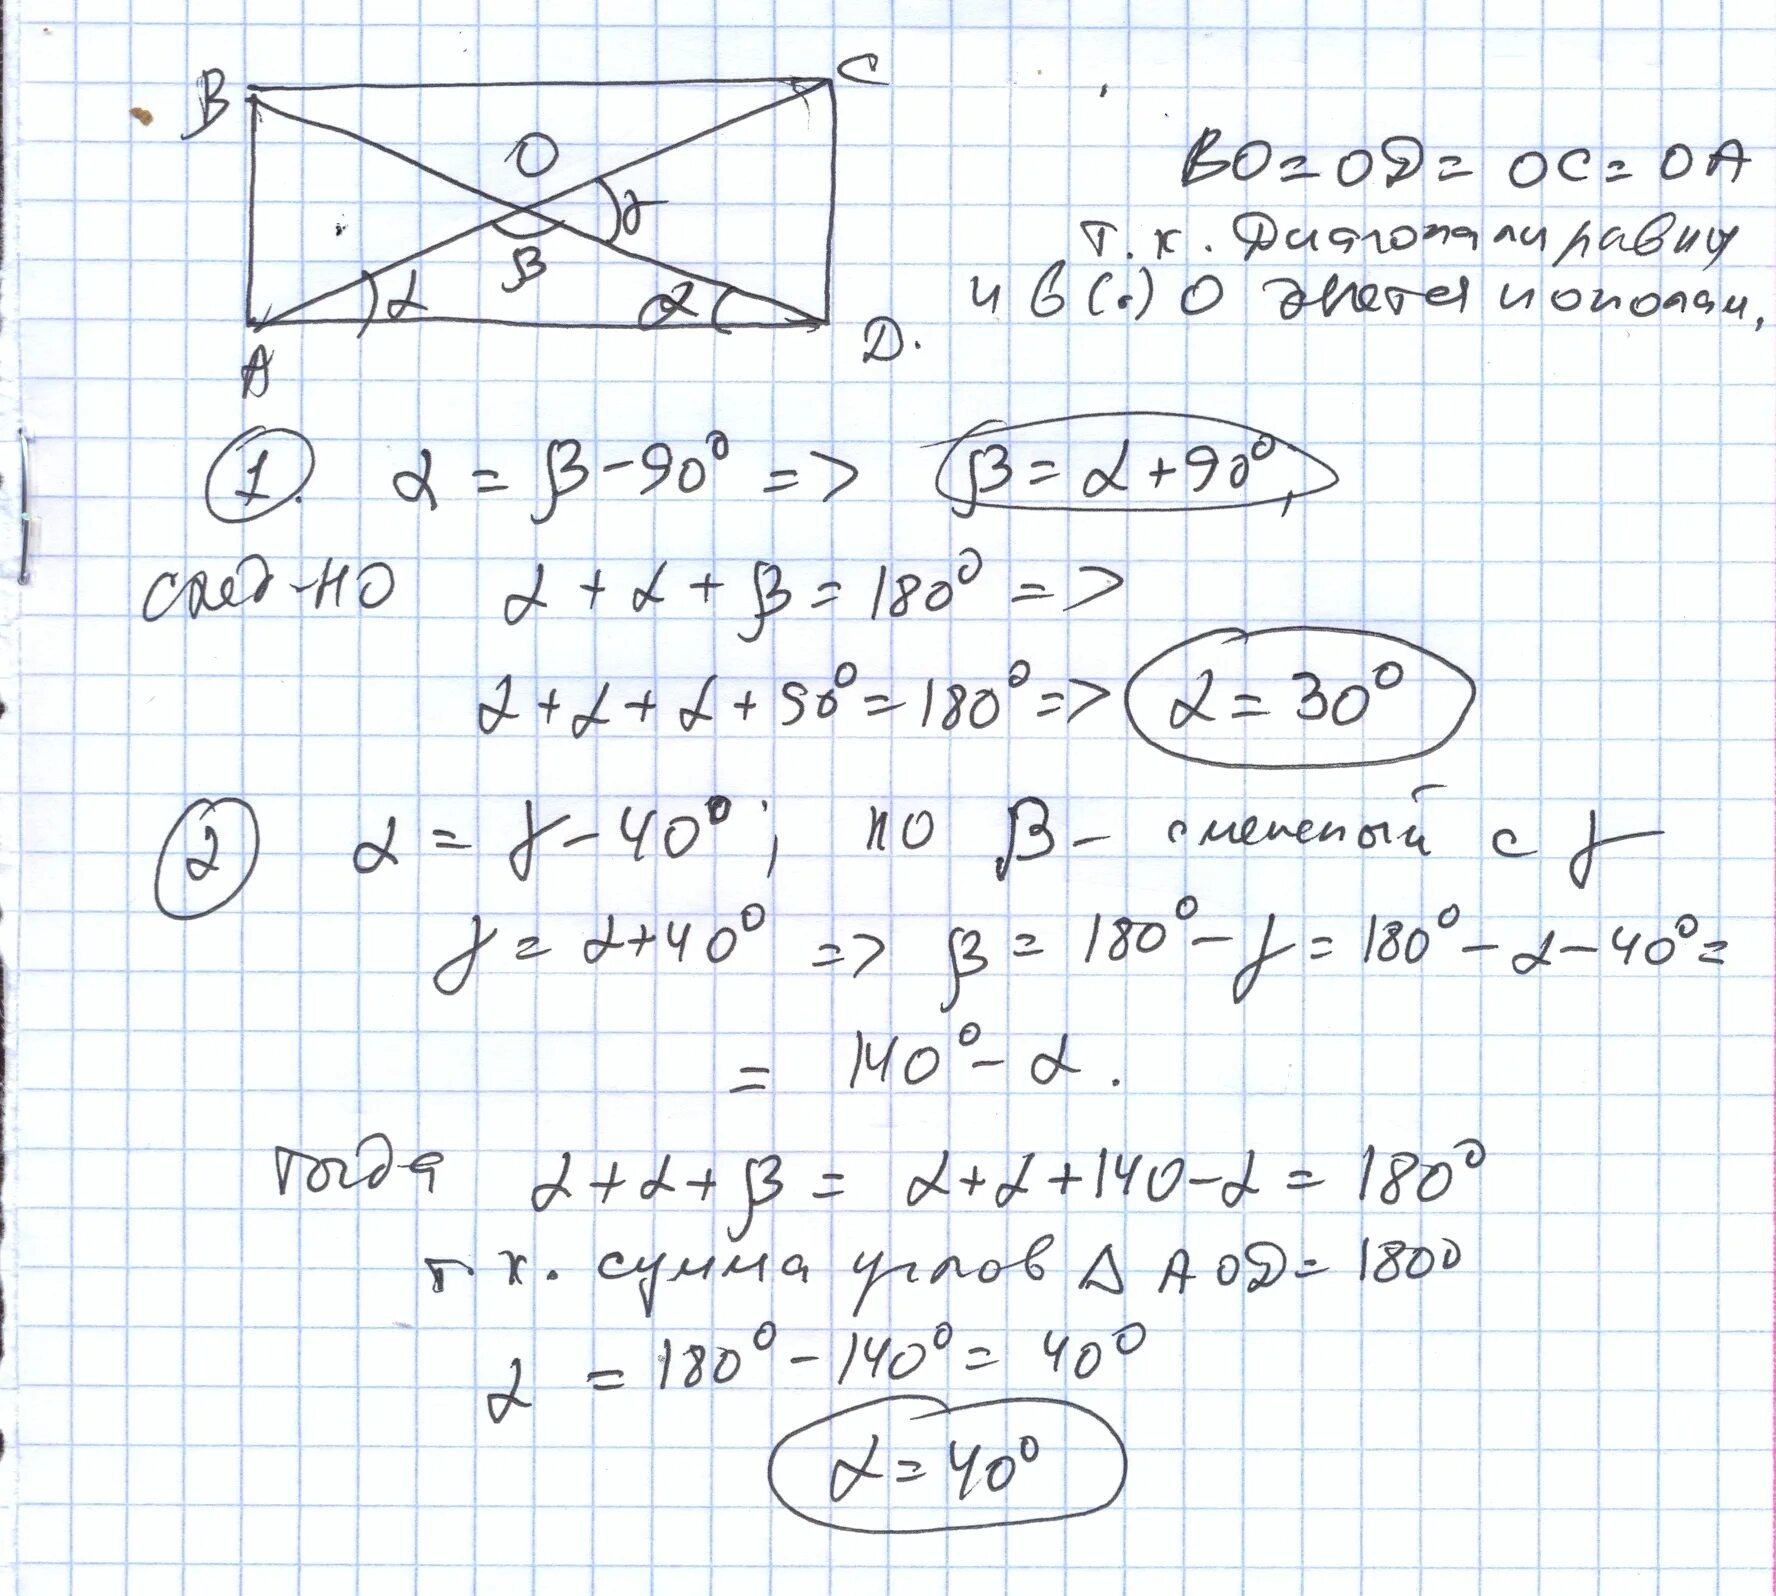 B C
O
γ
β
α α
A D.
BO = OD = OC = OA
т.к. Диагонали равны
и в (.) O делятся пополам,
1. α = β - 90° => β = α + 90°,
след-но α + α + β = 180° =>
α + α + α + 90° = 180° => α = 30°
2 α = γ - 40°; но β - смежный с γ
γ = α + 40° => β = 180° - γ = 180° - α - 40° =
= 140° - α.
тогда α + α + β = α + α + 140 - α = 180°
т.к. сумма углов Δ AOD = 180°
α = 180° - 140° = 40°
α = 40°